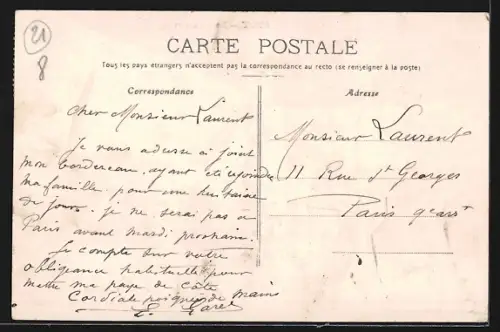 21
8
CARTE POSTALE
Tous les pays étrangers n'acceptent pas la correspondance au recto (se renseigner à la poste)
Correspondance
Cher Monsieur Laurent
Je vous adresse ci joint
mon bordereau, ayant été rejoindre
ma famille pour une huitaine
de jours. je ne serai pas à
Paris avant mardi prochain.
Je compte sur votre
obligeance habituelle pour
mettre ma paye de côté
Cordiale poignée de mains
Adresse
Monsieur Laurent
11 Rue St Georges
Paris 9e arrt